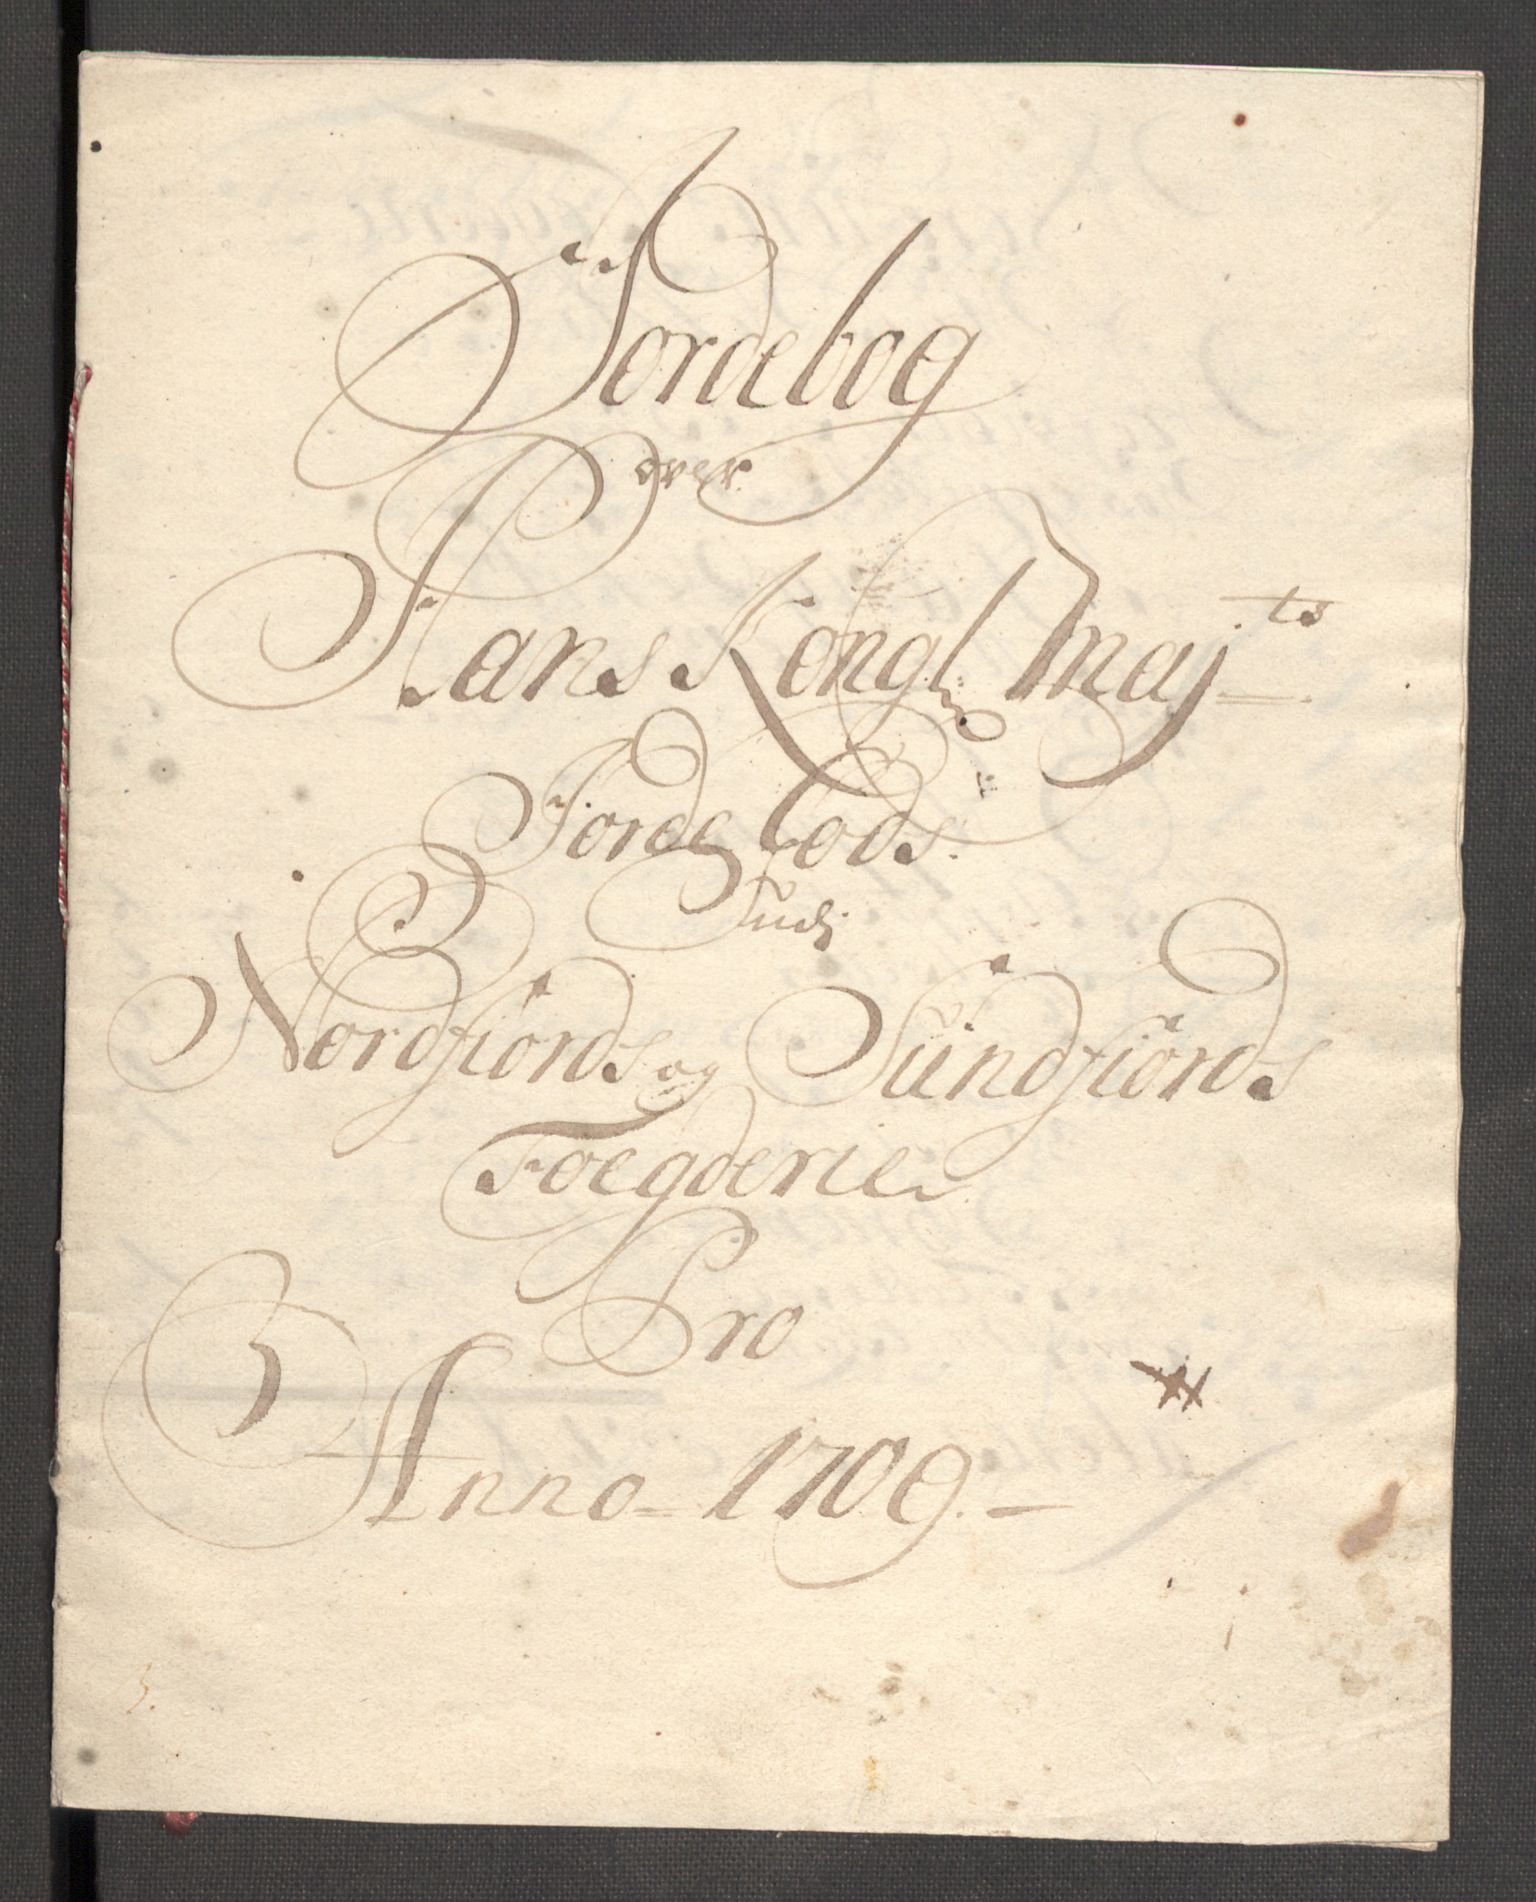 Jordebog
over
Hans Kongl Maj^ts
Jorde Gods
Judj
Nordfiords og Sundfiords
Foegderie
Pro
Anno 1709.
3.